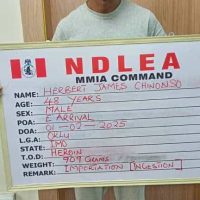 NDLEA
MMIA COMMAND
NAME: HERBERT JAMES CHINONSO
AGE: 48 YEARS
SEX: MALE
POA: E ARRIVAL
DOA: 01-02-2025
L.G.A: ORLU
STATE: IMO
T.O.D: HEROIN
WEIGHT: 909 GRAMS
REMARK: IMPORTATION INGESTION